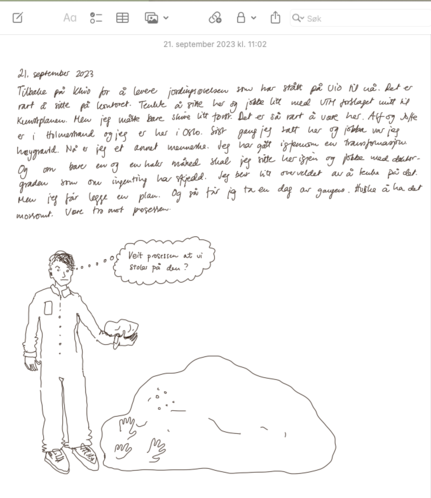 Aa
Søk
21. september 2023 kl. 11:02
21. september 2023
Tilbake på Khio for å levere jordingsøvelsen som har stått på Uio til nå. Det er
rart å sitte på kontoret. Tenkte å sitte her og jobbe litt med UTM forslaget mitt til
Kunstplanen. Men jeg måtte bare skrive litt først. Det er så rart å være her. Alf og
er i Holmestrand og jeg er her i Oslo. Sist gang jeg satt her og jobba var jeg
høygravid. Nå er jeg et annet menneske. Jeg har gått igjennom en transformasjon
Og om bare en og en halv måned skal jeg sitte her igjen og jobbe med doktor-
graden som om ingenting har skjedd. Jeg blir litt overveldet av å tenke på det.
Men jeg får legge en plan. Og så får jeg ta en dag av gangen. Huske å ha det
morsomt. Være tro mot prosessen.
Veit prosessen at vi
stoler på den?